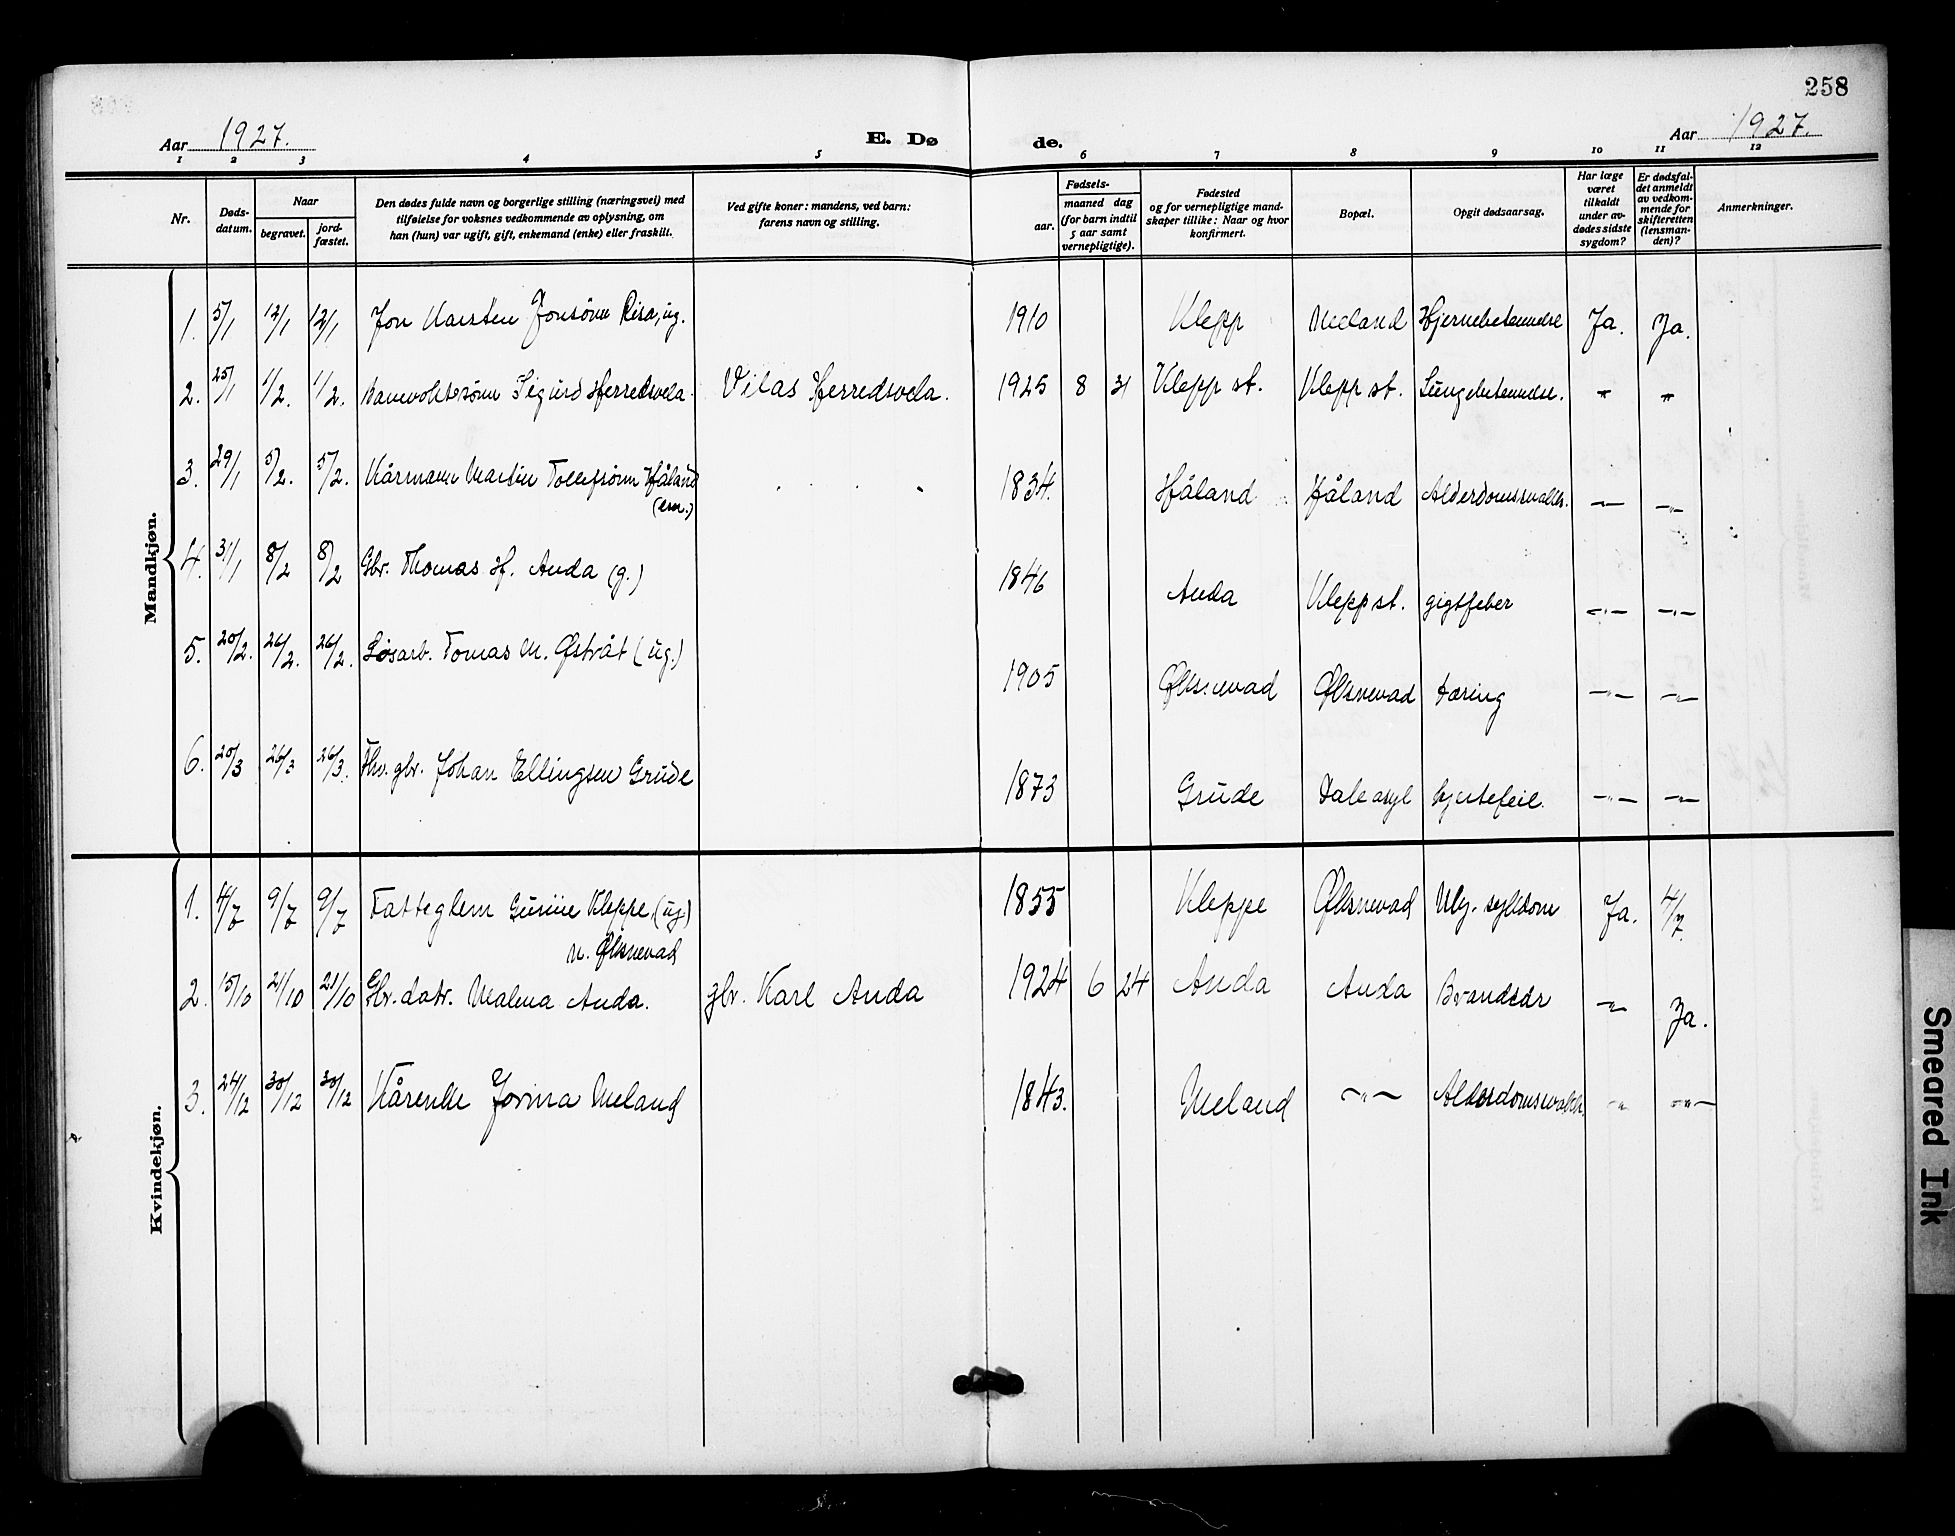 258
Aar 1927.
E. Dø
de.
Aar 1927.
1 2 3 4 5 6 7 8 9 10 11 12
Nr.
Døds-
datum.
Naar
begravet.
jord-
fæstet.
Den dødes fulde navn og borgerlige stilling (næringsvei) med
tilføielse for voksnes vedkommende av oplysning, om
han (hun) var ugift, gift, enkemand (enke) eller fraskilt.
Ved gifte koner: mandens, ved barn:
farens navn og stilling.
Fødsels-
aar.
maaned dag
(for barn indtil
5 aar samt
vernepligtige).
Fødested
og for vernepligtige mand-
skaper tillike: Naar og hvor
konfirmert.
Bopæl.
Opgit dødsaarsag.
Har læge
været
tilkaldt
under av-
dødes sidste
sygdom?
Er dødsfal-
det anmeldt
av vedkom-
mende for
skifteretten
(lensman-
den)?
Anmerkninger.
Mandkjøn.
1. 5/1 12/1 12/1 Jon Karsten Jonsønn Risa, ug. 1910 Klepp Meland Hjernebetennelse Ja. Ja.
2. 25/1 1/2. 1/2. Sigurd Herredsvela Vilas Herredsvela. 1925 8 31 Klepp st. Klepp st. Lungebetennelse. " "
3. 29/1 5/2. 5/2. Kårmann Martin Tollefsønn Håland 1834. Håland Håland Alderdomssvakh. —"— —"—
(em.)
4. 31/1 8/2 8/2 Gbr. Thomas H. Anda (g.) 1846 Anda Klepp st. gigtfeber —"— —"—
5. 20/2. 26/2. 26/2. Løsarb. Tomas M. Østråt (ug.) 1905 Øksnevad Øksnevad tæring —"— —"—
6. 20/3 26/3 26/3. Fhv. gbr. Johan Ellingsen Grude 1873 Grude Dale asyl hjertefeil. —"— —"—
Kvindekjøn.
1. 4/7 9/7 9/7 Fatteglem Gurine Kleppe, (ug.) 1855 Kleppe Øksnevad Ja. 4/7.
n. Øksnevad
2. 15/10 21/10 21/10 Gbr. datr. Malena Anda. gbr. Karl Anda 1924 6 24 Anda Anda Brandsår " Ja.
3. 24/12 30/12 30/12 Kårenke Jorina Meland 1843. Meland —"— Alderdomssvakh. —"— —"—
Smeared Ink